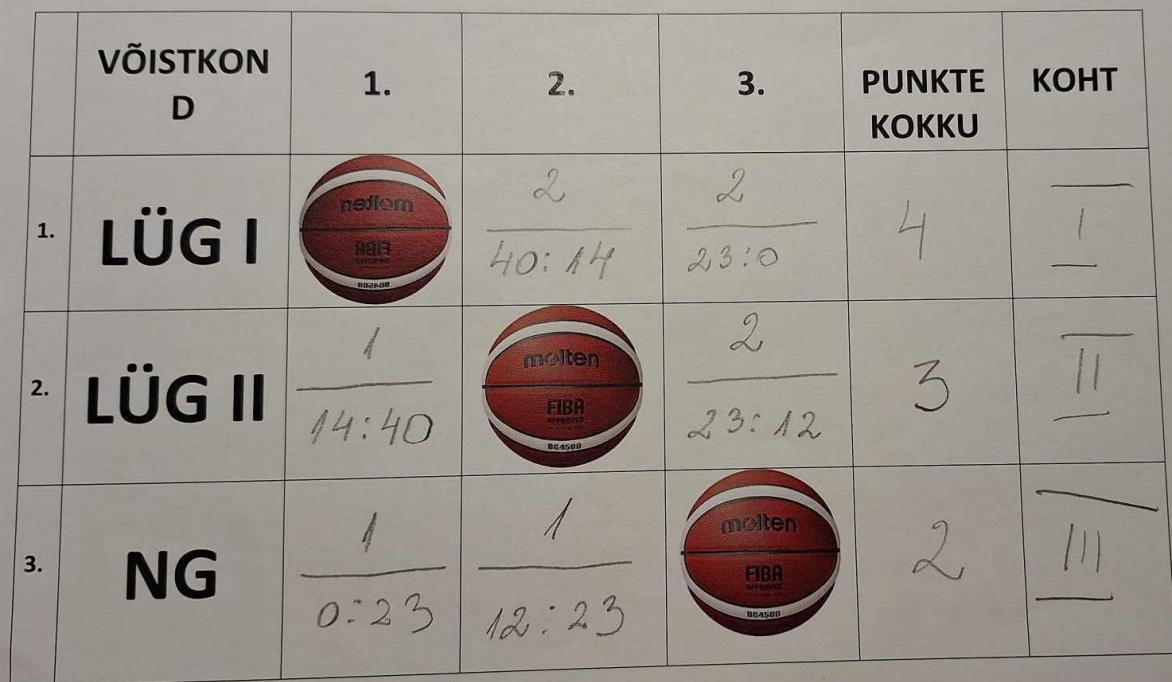 VÕISTKON
D
1.
2.
3.
PUNKTE
KOKKU
KOHT
1.
LÜG I
molten
FIBA
BG4500
2
40:14
2
23:0
4
I
2.
LÜG II
1
14:40
molten
FIBA
APPROVED
BG4500
2
23:12
3
II
3.
NG
1
0:23
1
12:23
molten
FIBA
APPROVED
BG4500
2
III